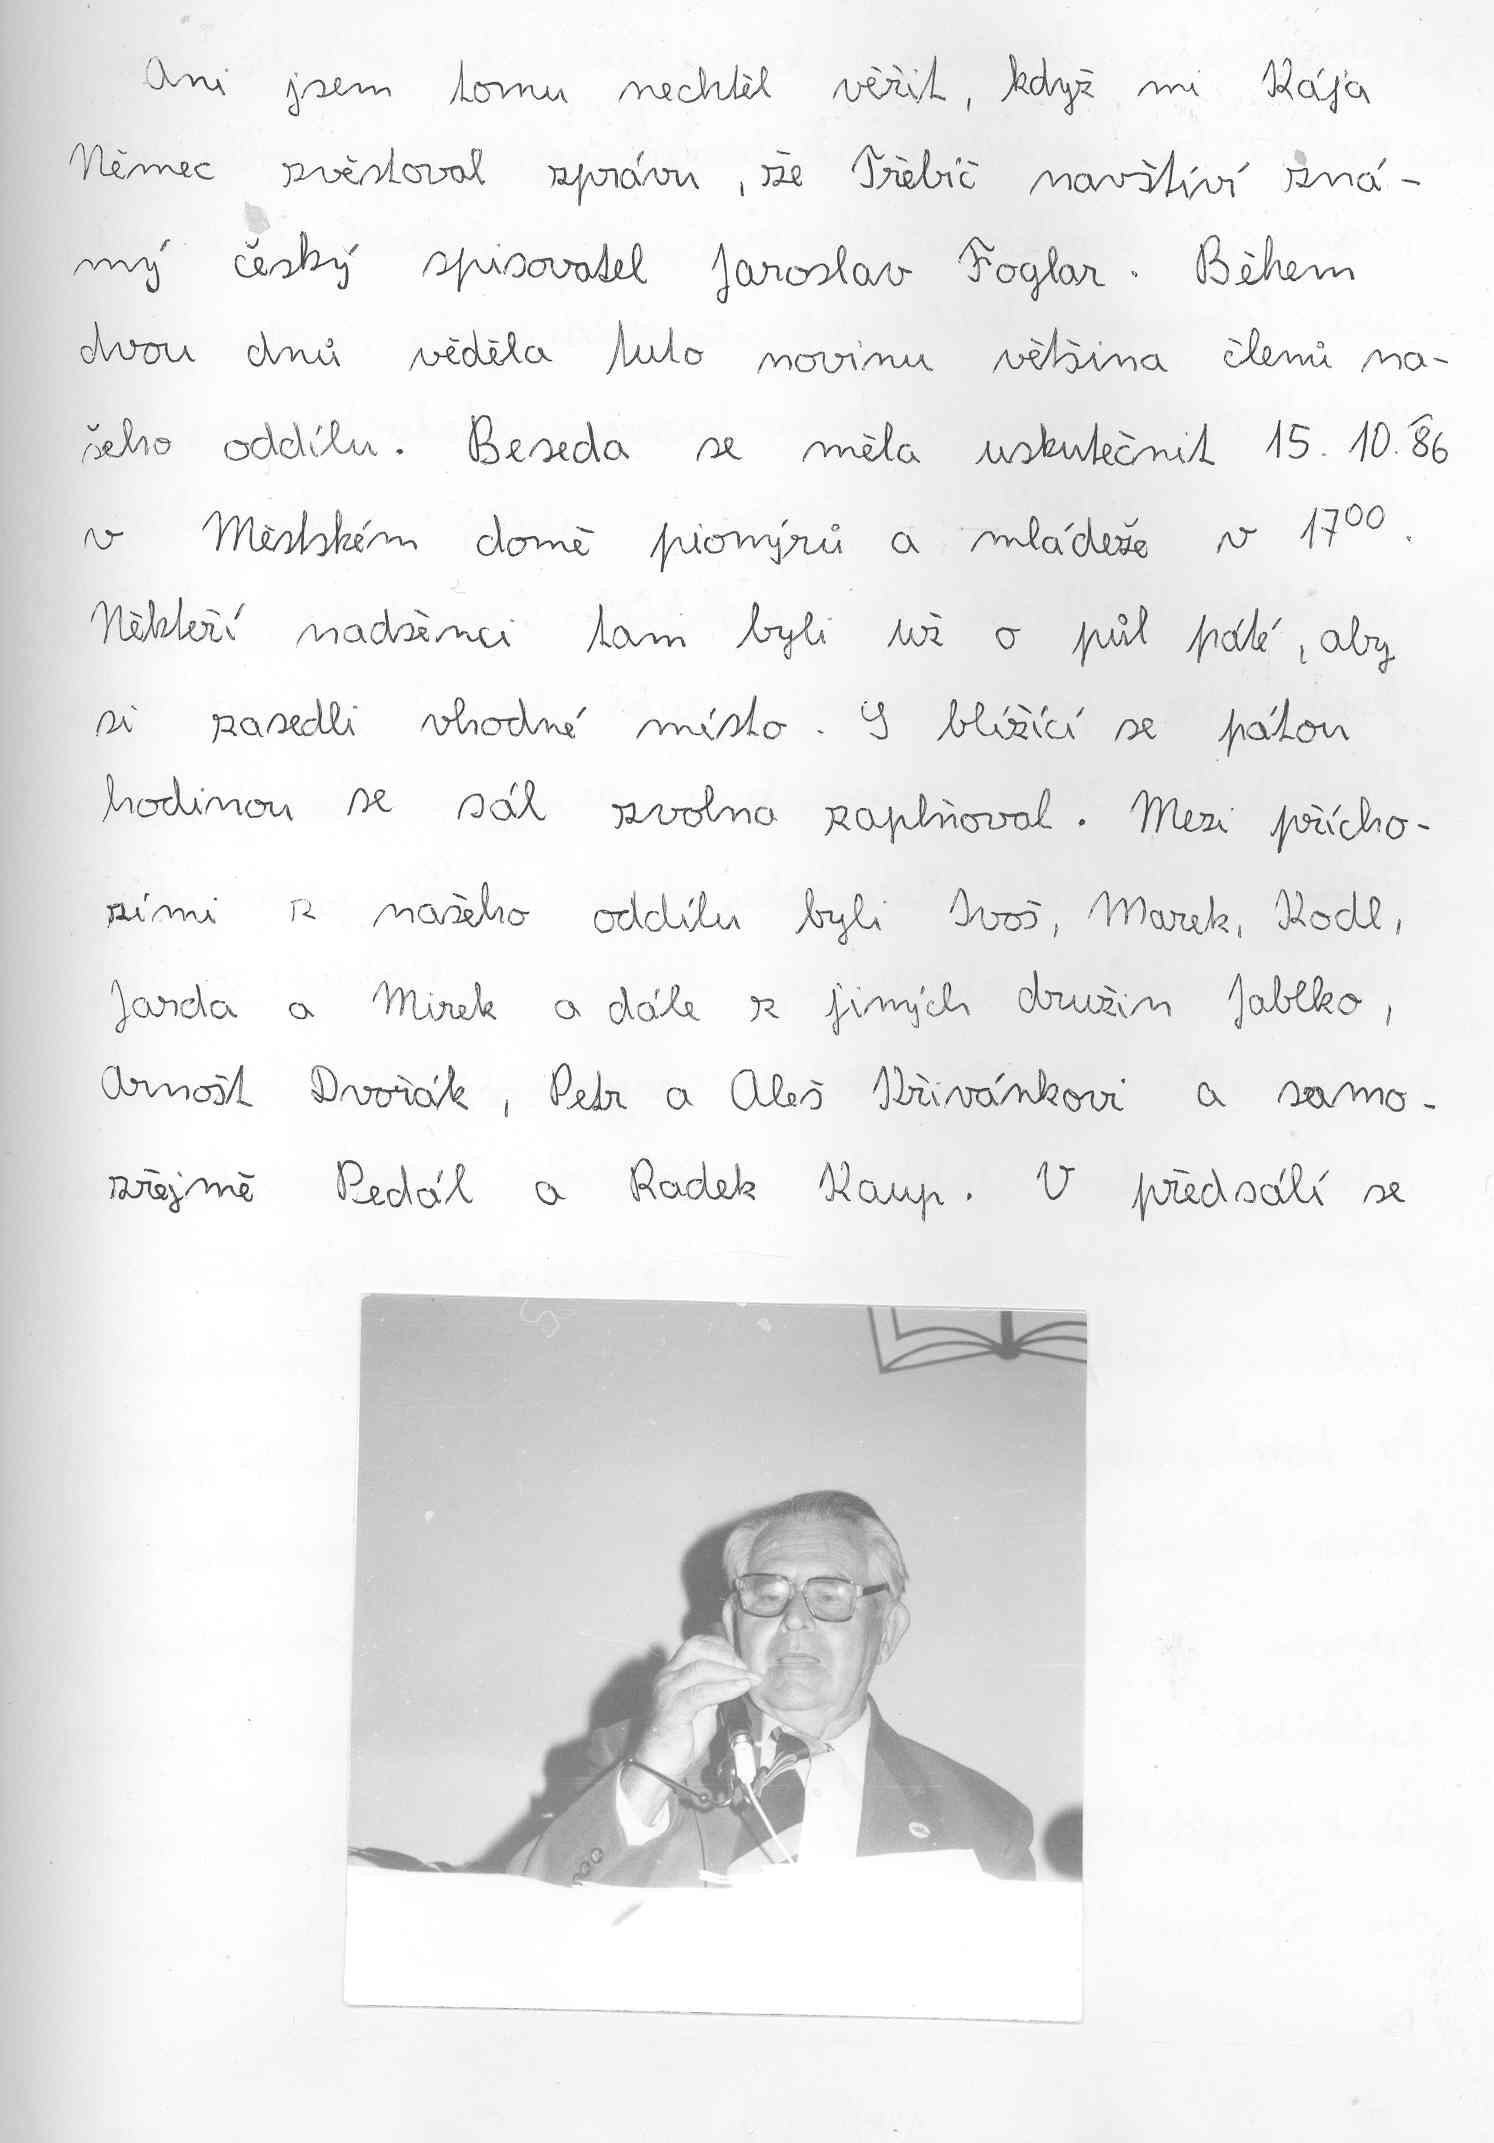 Ani jsem tomu nechtěl věřit, když mi Kája
Němec zvěstoval zprávu, že Třebíč navštíví zná-
mý český spisovatel Jaroslav Foglar. Během
dvou dnů věděla tuto novinu většina členů na-
šeho oddílu. Beseda se měla uskutečnit 15. 10. 86
v Městském domě pionýrů a mládeže v 17⁰⁰.
Někteří nadšenci tam byli už o půl páté, aby
si zasedli vhodné místo. S blížící se pátou
hodinou se sál zvolna zaplňoval. Mezi přícho-
zími z našeho oddílu byli Ivoš, Marek, Kodl,
Jarda a Mirek a dále z jiných družin Jablko,
Arnošt Dvořák, Petr a Aleš Křivánkovi a samo-
zřejmě Pedál a Radek Kaup. V předsálí se